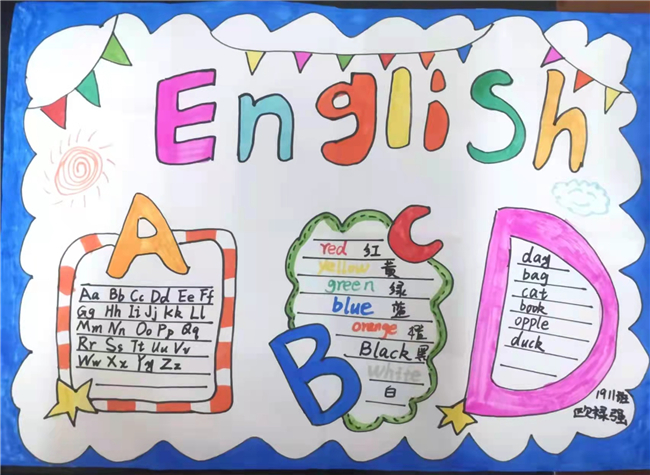 English
A
Aa Bb Cc Dd Ee Ff
Gg Hh Ii Jj Kk Ll
Mm Nn Oo Pp Qq
Rr Ss Tt Uu Vv
Ww Xx Yy Zz
B
C
red 红
yellow 黄
green 绿
blue 蓝
orange 橙
Black 黑
white
白
D
dag
bag
cat
book
opple
duck
1911班